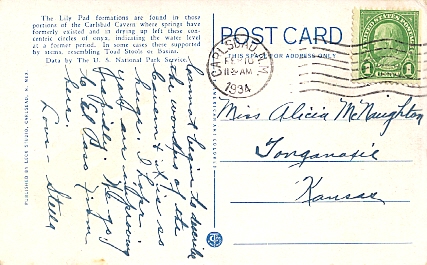 The Lily Pad formations are found in those
portions of the Carlsbad Cavern where springs have
formerly existed and in drying up left these con-
centric circles of onyx, indicating the water level
at a former period. In some cases their supported
by stems, resembling Toad Stools or Basins.
Data by The U. S. National Park Service.
POST CARD
THIS SPACE FOR ADDRESS ONLY
CARLSBAD N.M.
11 AM
1934
Miss Alicia McNaughton
Tonganoxie
Kansas
Cannot begin to describe
the wonders of the
it is so
huge. I hope
you are improving
rapidly. We go
to El Paso from
here.
Love - Stella
PUBLISHED BY STUDIO, CARLSBAD, N. MEX.